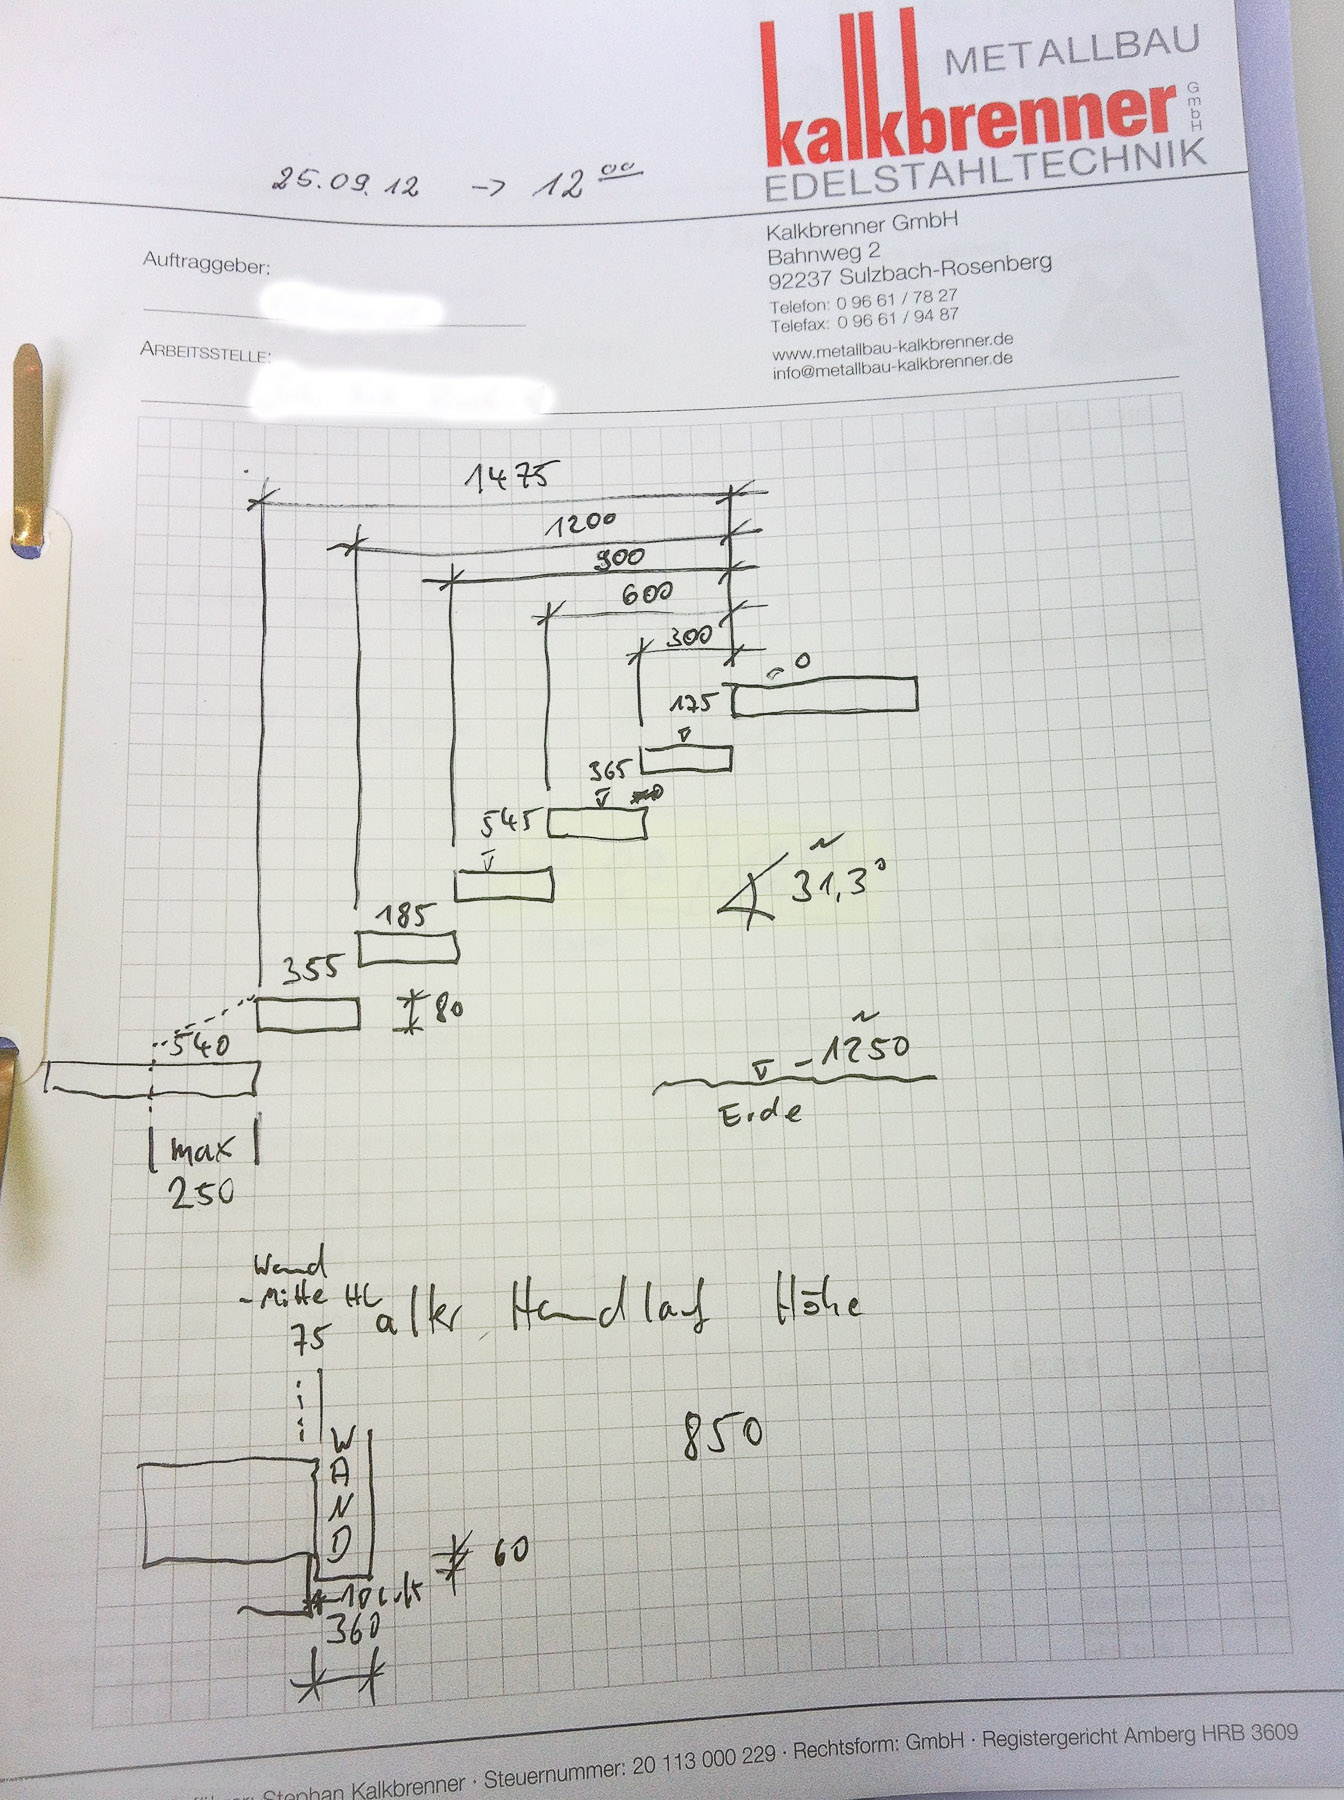 METALLBAU
kalkbrenner
GmbH
EDELSTAHLTECHNIK
25.09.12 -> 12 00
Kalkbrenner GmbH
Bahnweg 2
92237 Sulzbach-Rosenberg
Telefon: 0 96 61 / 78 27
Telefax: 0 96 61 / 94 87
www.metallbau-kalkbrenner.de
info@metallbau-kalkbrenner.de
Auftraggeber:
ARBEITSSTELLE:
1475
1200
900
600
300
0
175
365
545
~ 31,3°
185
355
80
540
~
-1250
Erde
max
250
Wand
-Mitte HL
75
alter Handlauf Höhe
850
WAND
60
10 Luft
360
Stephan Kalkbrenner · Steuernummer: 20 113 000 229 · Rechtsform: GmbH · Registergericht Amberg HRB 3609